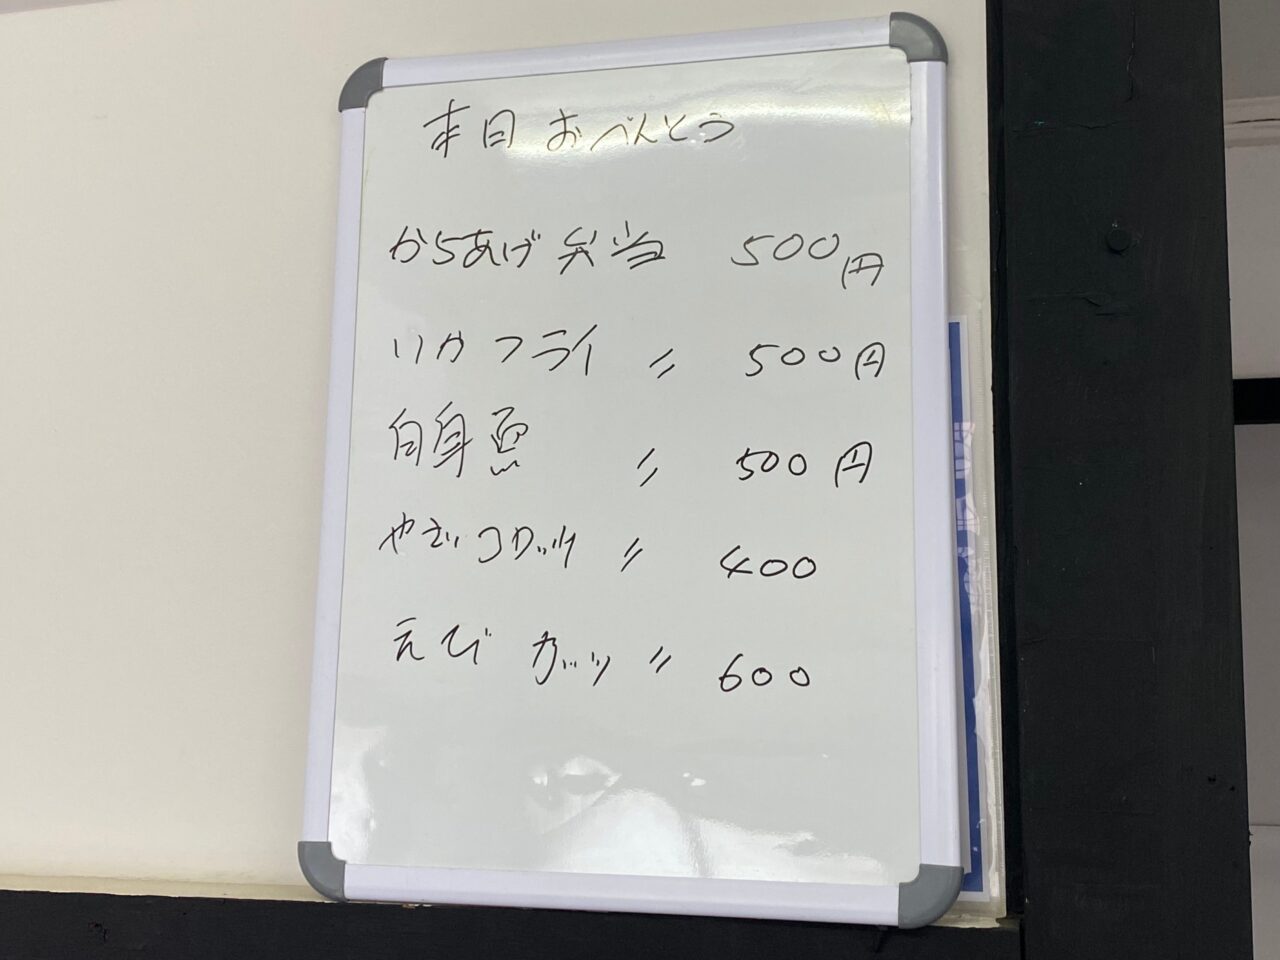 本日 おべんとう
からあげ 弁当 500円
いかフライ 〃 500円
白身魚 〃 500円
やさいコロッケ 〃 400
えび カッツ 〃 600